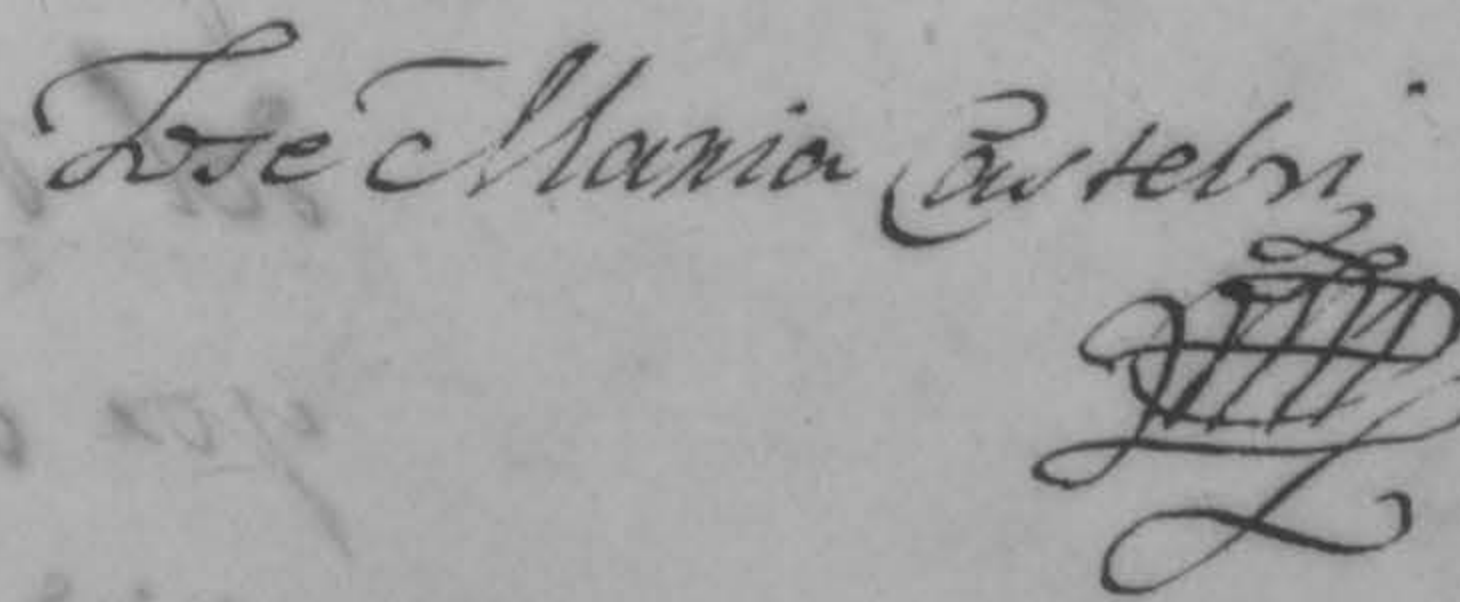 Jose Maria Castelvi